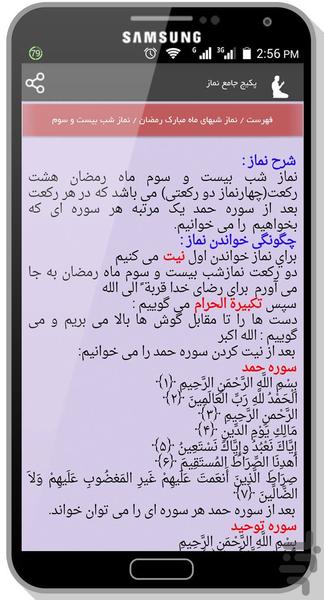 SAMSUNG
79 G 3G 2:56 PM
پکیج جامع نماز
فهرست / نماز شبهای ماه مبارک رمضان / نماز شب بیست و سوم
شرح نماز :
نماز شب بیست و سوم ماه رمضان هشت
رکعت(چهارنماز دو رکعتی) می باشد که در هر رکعت
بعد از سوره حمد یک مرتبه هر سوره ای که
بخواهیم را می خوانیم.
چگونگی خواندن نماز :
برای نماز خواندن اول نیت می کنیم
دو رکعت نمازشب بیست و سوم ماه رمضان به جا
می آورم برای رضای خدا قربةً الی الله
سپس تکبیرة الحرام می گوییم :
دست ها را تا مقابل گوش ها بالا می بریم و می
گوییم : الله اکبر
بعد از نیت کردن سوره حمد را می خوانیم:
سوره حمد
بِسْمِ اللَّهِ الرَّحْمَنِ الرَّحِيمِ ﴿١﴾
الْحَمْدُ لِلَّهِ رَبِّ الْعَالَمِينَ ﴿٢﴾
الرَّحْمَنِ الرَّحِيمِ ﴿٣﴾
مَالِكِ يَوْمِ الدِّينِ ﴿۴﴾
إِيَّاكَ نَعْبُدُ وإِيَّاكَ نَسْتَعِينُ ﴿۵﴾
اهْدِنَا الصِّرَاطَ الْمُسْتَقِيمَ ﴿۶﴾
صِرَاطَ الَّذِينَ أَنْعَمْتَ عَلَيْهِمْ غَيْرِ الْمَغْضُوبِ عَلَيْهِمْ وَلَا
الضَّالِّينَ ﴿٧﴾
بعد از سوره حمد هر سوره ای را می توان خواند.
سوره توحید
بِسْمِ اللَّهِ الرَّحْمَنِ الرَّحِيمِ